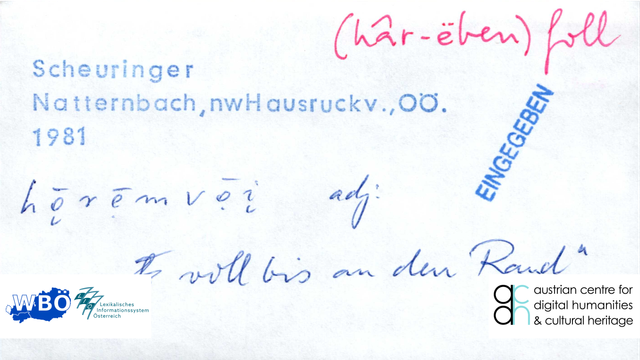 (hâr-ëben) foll
Scheuringer
Natternbach,nwHausruckv.,OÖ.
1981
EINGEGEBEN
hǭ̣rēm vǭ̣i̯ adj:
voll bis an den Rand"
WBÖ
Lexikalisches
Informationssystem
Österreich
austrian centre for
digital humanities
& cultural heritage